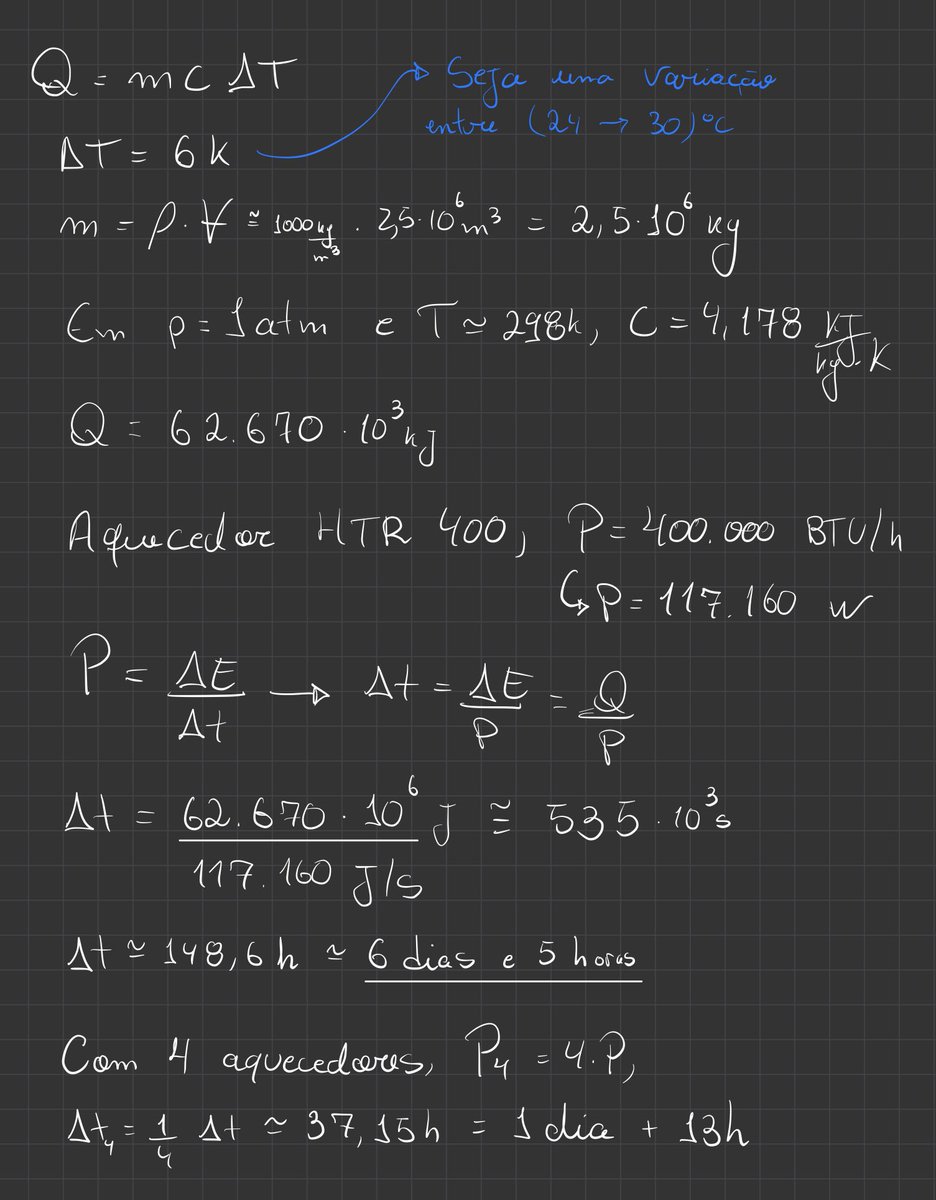 Q = m c ΔT
→ Seja uma variação
entre (24 → 30)°C
ΔT = 6 K
m = ρ · V ≅ 1000 kg/m³ · 2,5·10⁶ m³ = 2,5·10⁶ kg
Em p = 1 atm e T ≃ 298k, C = 4,178 kJ/kg·K
Q = 62.670 · 10³ kJ
Aquecedor HTR 400, P = 400.000 BTU/h
↳ P = 117.160 W
P = ΔE/Δt → Δt = ΔE/P = Q/P
Δt = 62.670 · 10⁶ J / 117.160 J/s ≅ 535 · 10³ s
Δt ≃ 148,6 h ≃ 6 dias e 5 horas
Com 4 aquecedores, P₄ = 4·P,
Δt₄ = 1/4 Δt ≃ 37,15h = 1 dia + 13h